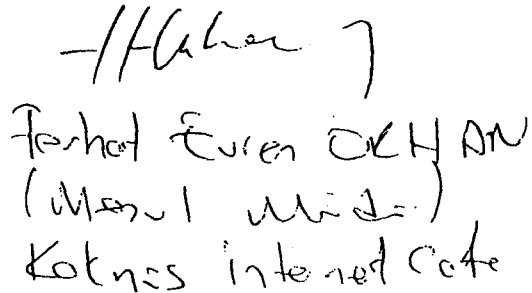 Ferhat Evren OKHAN
(Mesul Müdür)
Kotnis internet Cafe